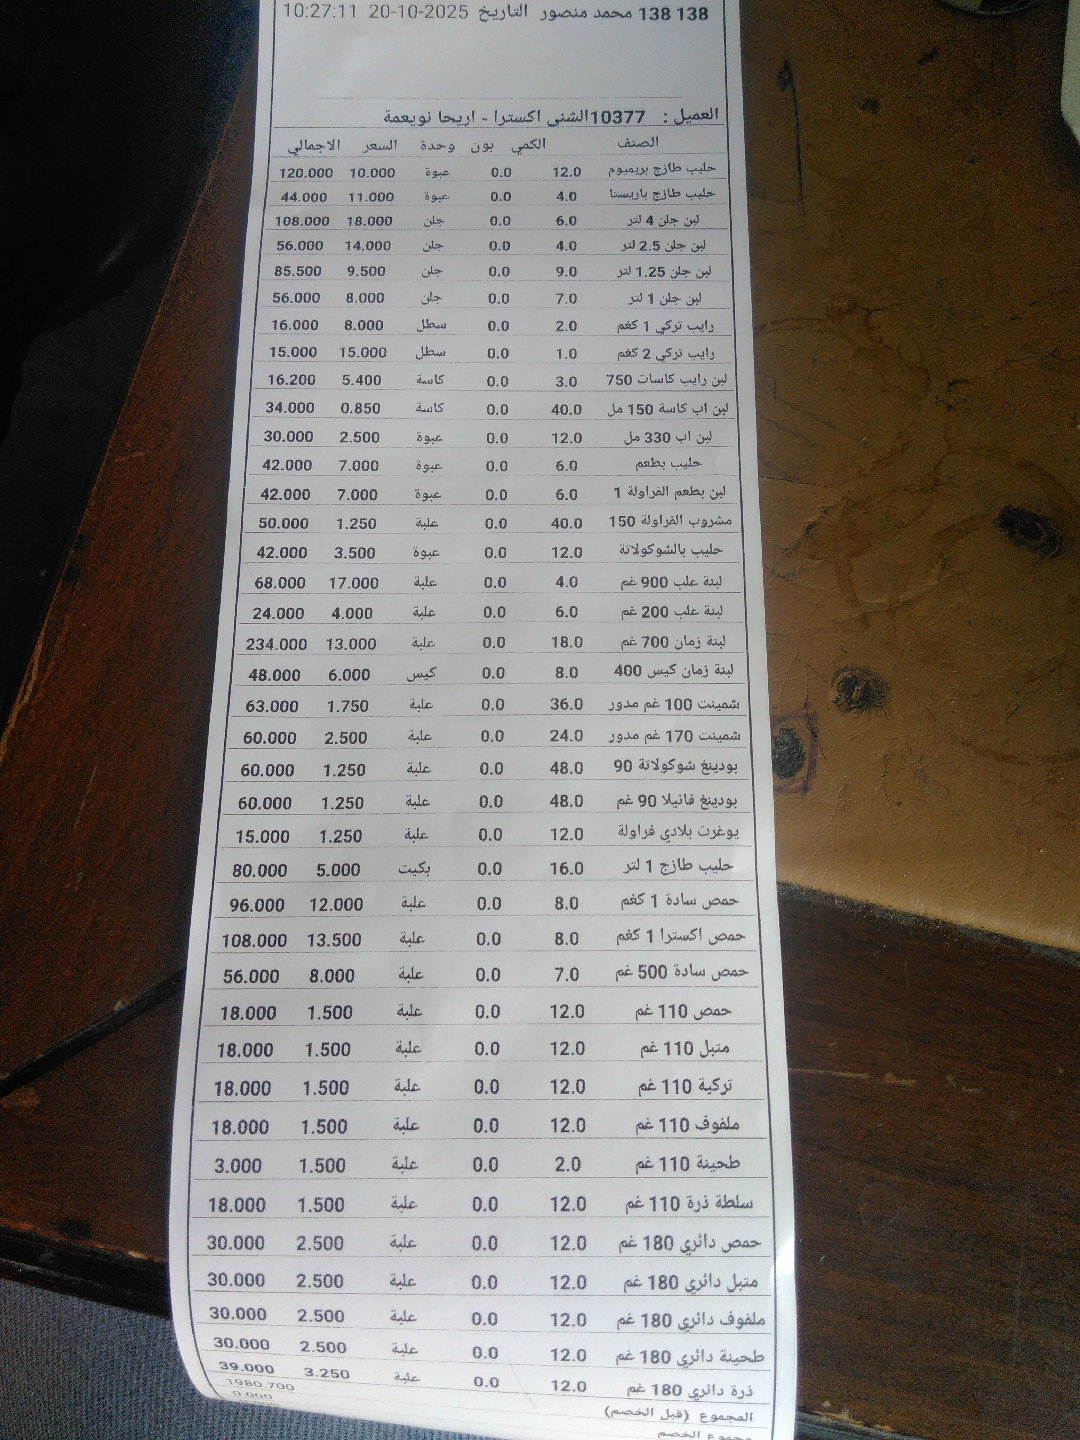 138 138 محمد منصور التاريخ 20-10-2025 10:27:11
العميل : 10377الشني اكسترا - اريحا نويعمة
الصنف الكمي بون وحدة السعر الاجمالي
حليب طازج بريميوم 12.0 0.0 عبوة 10.000 120.000
حليب طازج باريستا 4.0 0.0 عبوة 11.000 44.000
لبن جلن 4 لتر 6.0 0.0 جلن 18.000 108.000
لبن جلن 2.5 لتر 4.0 0.0 جلن 14.000 56.000
لبن جلن 1.25 لتر 9.0 0.0 جلن 9.500 85.500
لبن جلن 1 لتر 7.0 0.0 جلن 8.000 56.000
رايب تركي 1 كغم 2.0 0.0 سطل 8.000 16.000
رايب تركي 2 كغم 1.0 0.0 سطل 15.000 15.000
لبن رايب كاسات 750 3.0 0.0 كاسة 5.400 16.200
لبن اب كاسة 150 مل 40.0 0.0 كاسة 0.850 34.000
لبن اب 330 مل 12.0 0.0 عبوة 2.500 30.000
حليب بطعم 6.0 0.0 عبوة 7.000 42.000
لبن بطعم الفراولة 1 6.0 0.0 عبوة 7.000 42.000
مشروب الفراولة 150 40.0 0.0 علبة 1.250 50.000
حليب بالشوكولاتة 12.0 0.0 عبوة 3.500 42.000
لبنة علب 900 غم 4.0 0.0 علبة 17.000 68.000
لبنة علب 200 غم 6.0 0.0 علبة 4.000 24.000
لبنة زمان 700 غم 18.0 0.0 علبة 13.000 234.000
لبنة زمان كيس 400 8.0 0.0 كيس 6.000 48.000
شمينت 100 غم مدور 36.0 0.0 علبة 1.750 63.000
شمينت 170 غم مدور 24.0 0.0 علبة 2.500 60.000
بودينغ شوكولاتة 90 48.0 0.0 علبة 1.250 60.000
بودينغ فانيلا 90 غم 48.0 0.0 علبة 1.250 60.000
يوغرت بلادي فراولة 12.0 0.0 علبة 1.250 15.000
حليب طازج 1 لتر 16.0 0.0 بكيت 5.000 80.000
حمص سادة 1 كغم 8.0 0.0 علبة 12.000 96.000
حمص اكسترا 1 كغم 8.0 0.0 علبة 13.500 108.000
حمص سادة 500 غم 7.0 0.0 علبة 8.000 56.000
حمص 110 غم 12.0 0.0 علبة 1.500 18.000
متبل 110 غم 12.0 0.0 علبة 1.500 18.000
تركية 110 غم 12.0 0.0 علبة 1.500 18.000
ملفوف 110 غم 12.0 0.0 علبة 1.500 18.000
طحينة 110 غم 2.0 0.0 علبة 1.500 3.000
سلطة ذرة 110 غم 12.0 0.0 علبة 1.500 18.000
حمص دائري 180 غم 12.0 0.0 علبة 2.500 30.000
متبل دائري 180 غم 12.0 0.0 علبة 2.500 30.000
ملفوف دائري 180 غم 12.0 0.0 علبة 2.500 30.000
طحينة دائري 180 غم 12.0 0.0 علبة 2.500 30.000
ذرة دائري 180 غم 12.0 0.0 علبة 3.250 39.000
المجموع (قبل الخصم) 1980.700
مجموع الخصم 0.000